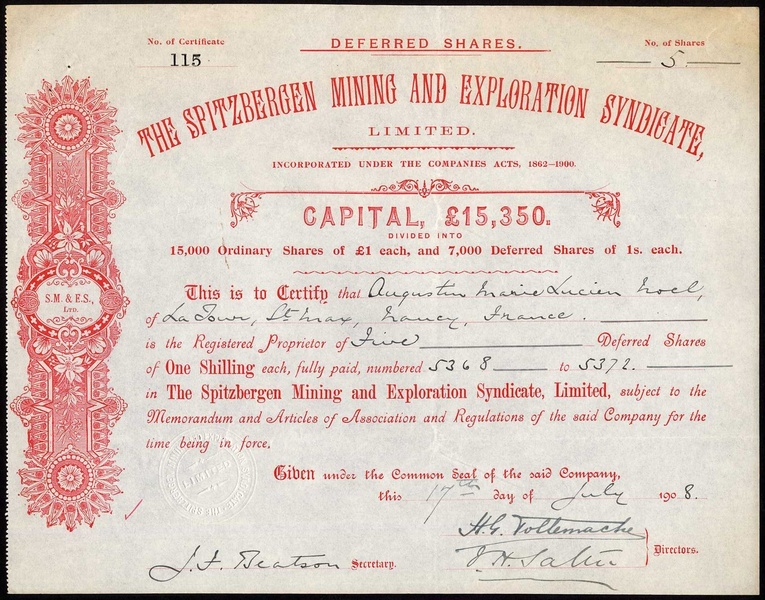 No. of Certificate
115
DEFERRED SHARES.
No. of Shares
5
THE SPITZBERGEN MINING AND EXPLORATION SYNDICATE,
LIMITED.
INCORPORATED UNDER THE COMPANIES ACTS, 1862–1900.
CAPITAL, £15,350.
DIVIDED INTO
15,000 Ordinary Shares of £1 each, and 7,000 Deferred Shares of 1s. each.
S.M. & E.S.,
LTD.
This is to Certify that Augustin Marie Lucien Noel,
of La Tour, St Max, Nancy, France.
is the Registered Proprietor of Five Deferred Shares
of One Shilling each, fully paid, numbered 5368 to 5372.
in The Spitzbergen Mining and Exploration Syndicate, Limited, subject to the
Memorandum and Articles of Association and Regulations of the said Company for the
time being in force.
LIMITED
Given under the Common Seal of the said Company,
this 17th day of July 1908.
H.G. Tollemache
Directors.
J.F. Beatson Secretary.